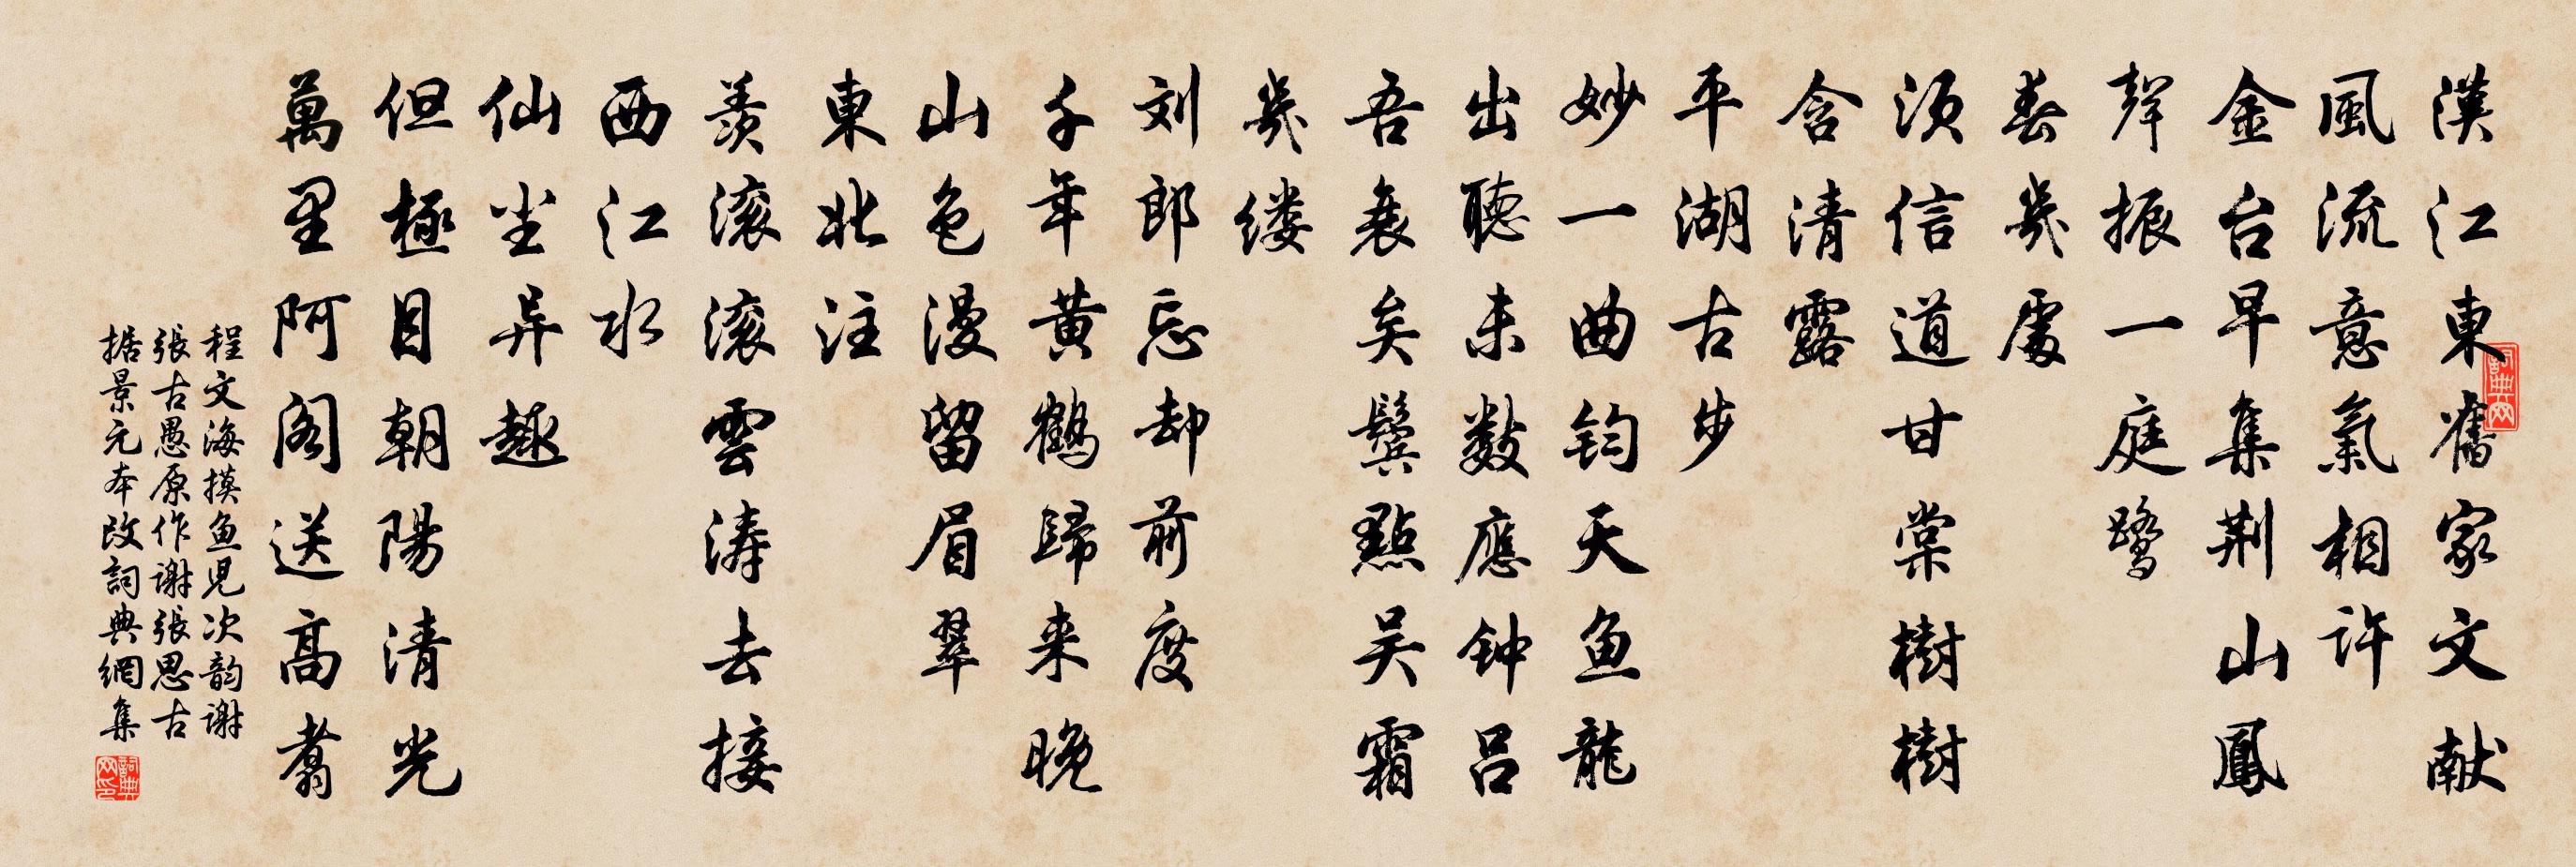 漢江東舊家文献
風流意氣相許
金台早集荆山鳳
聲振一庭鷺
春幾處
须信道甘棠樹樹
含清露
平湖古步
妙一曲钧天鱼龍
出聽未数應钟吕
吾衰矣鬓點吴霜
幾缕
刘郎忘却前度
千年黄鶴歸来晚
山色漫留眉翠
東北注
羡滚滚雲涛去接
西江水
仙尘异趣
但極目朝陽清光
萬里阿阁送高翥
程文海摸鱼児次韵谢
張古愚原作谢張思古
据景元本改詞典網集
詞典网
詞典网印